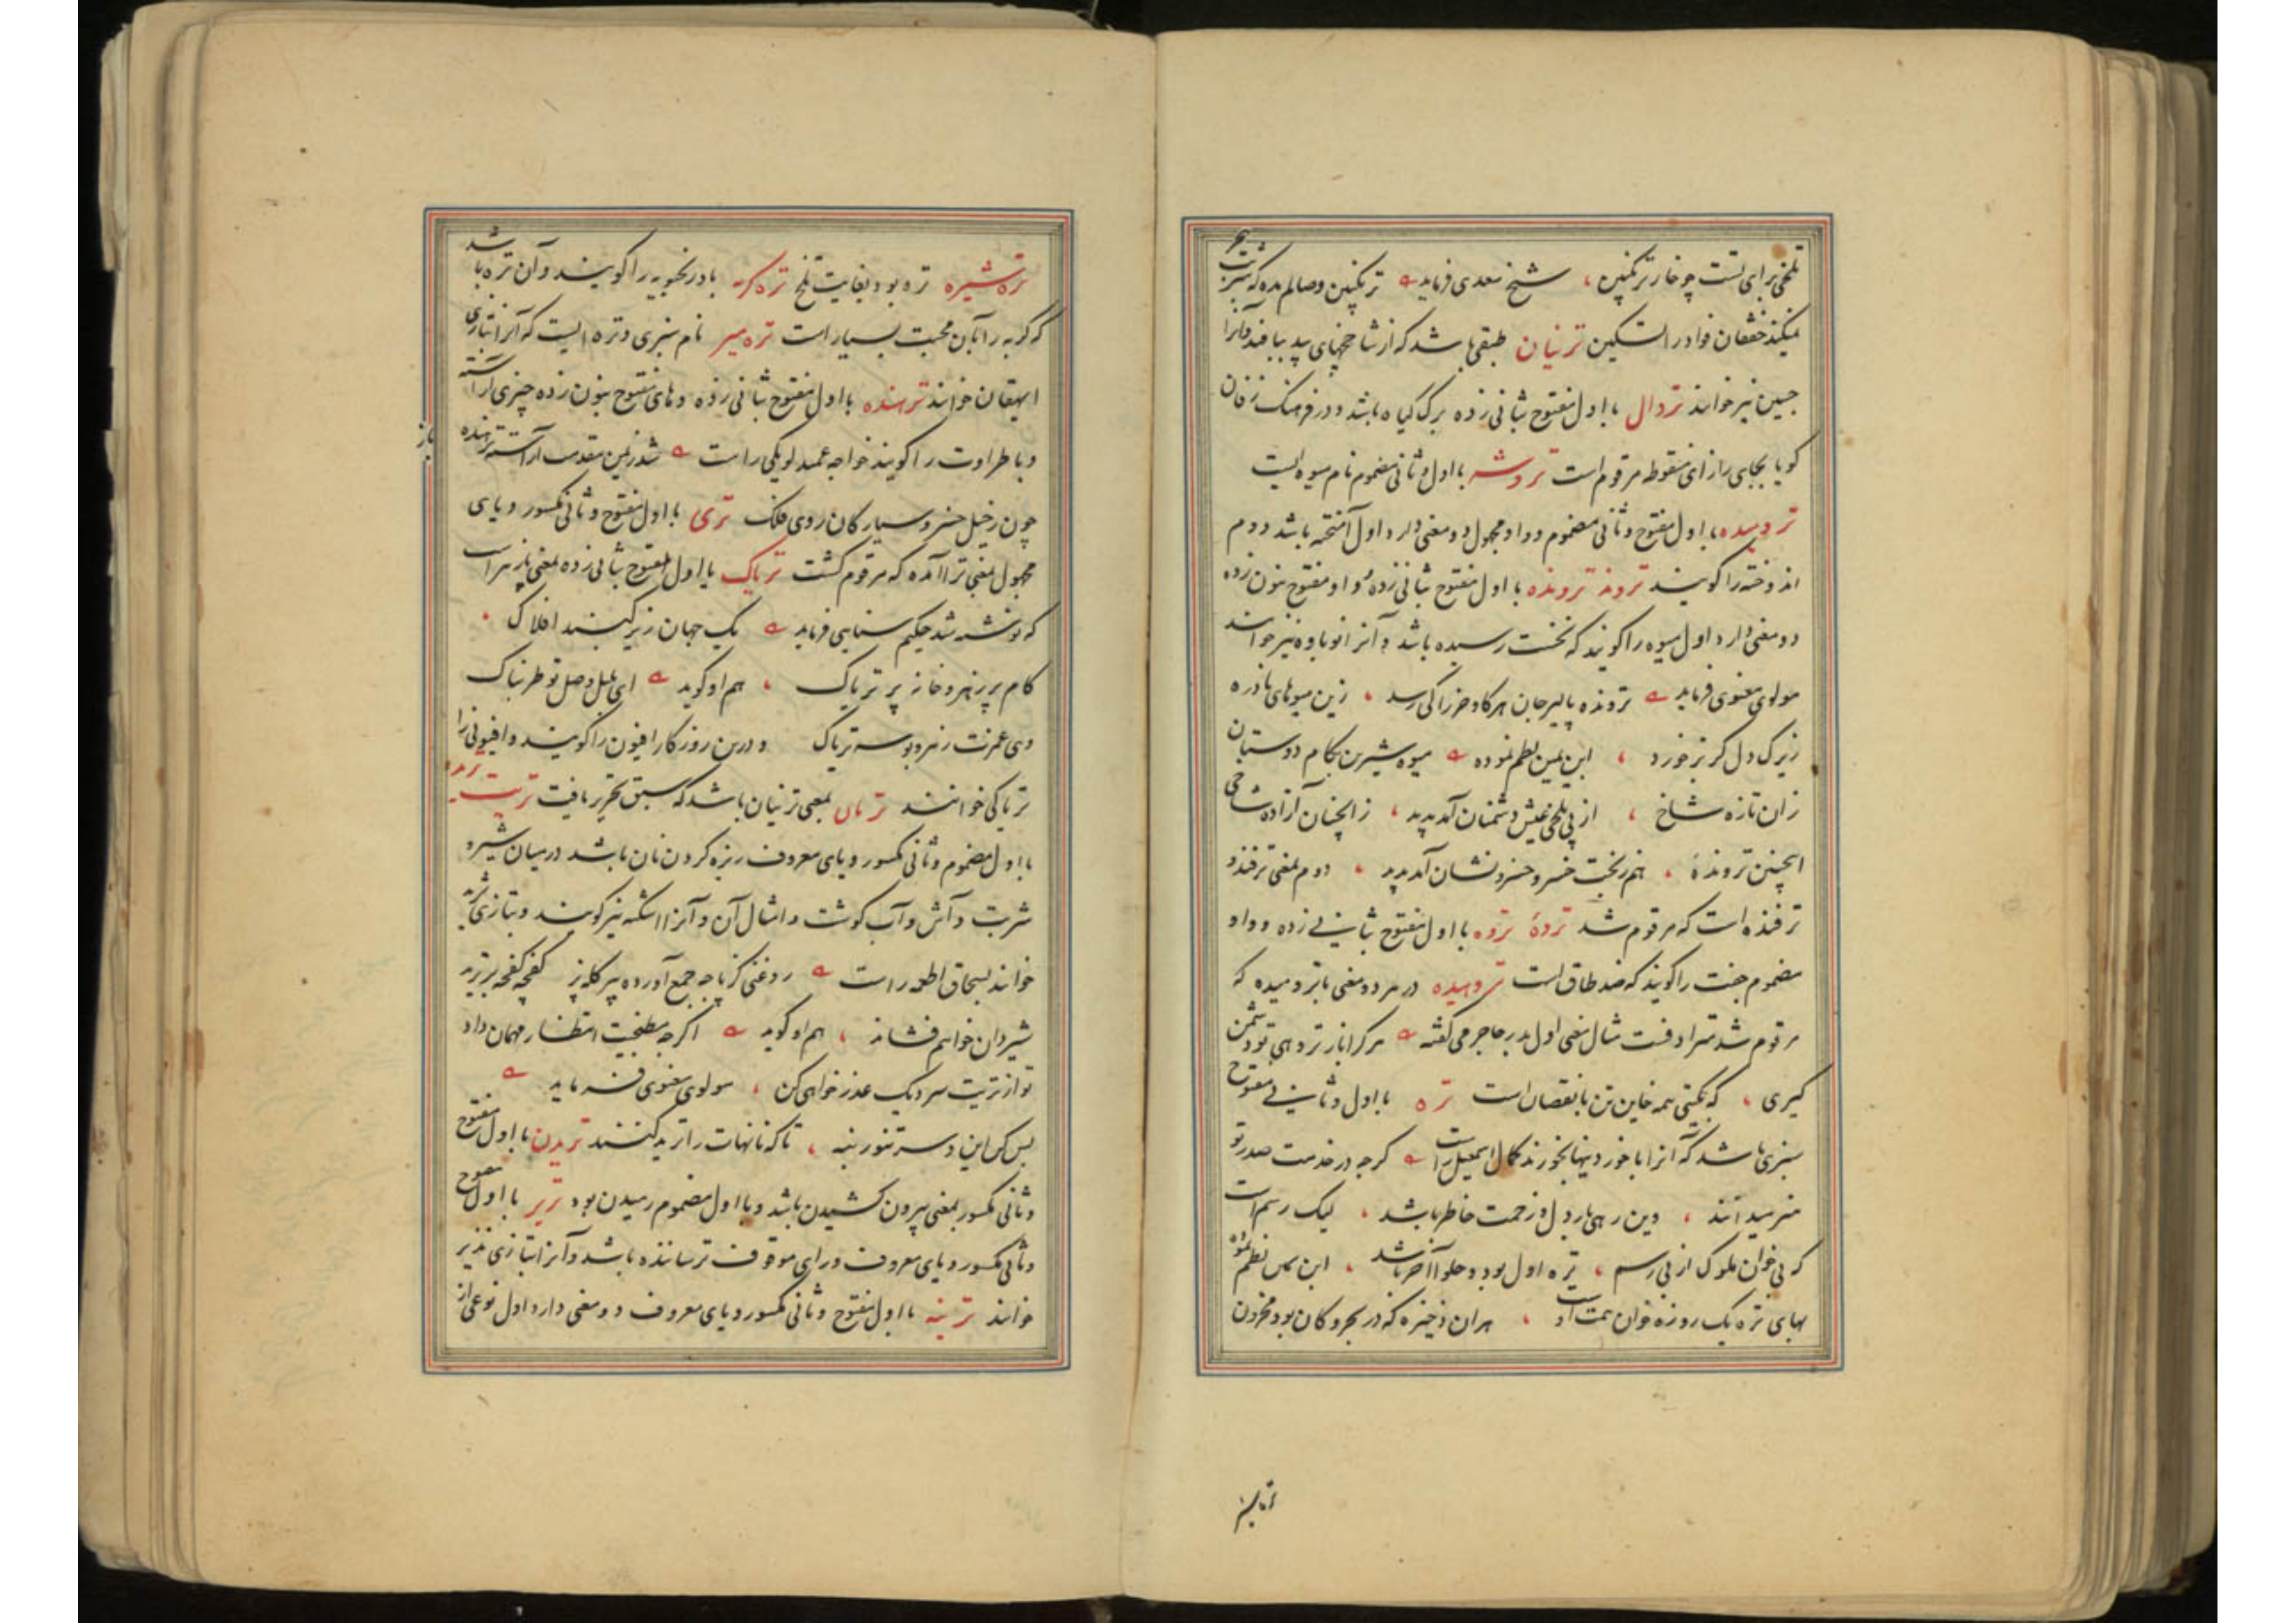 تلخی برای تست چو خار ترنگبین، شیخ سعدی فرماید ترنگبین وصالم بده که شربت صبر
نمیکند خفقان فواد را تسکین ترنیان طبقی باشد که از شاخچهای بید ببافند و آنرا
جبین نیز خوانند تروال با اول مفتوح بثانی زده برگ گیاه باشد و در فرهنگ زفان
کویا بجای را زای منقوطه مرقوم است تروشه با اول و ثانی مضموم نام میوه ایست
ترومیده با اول مفتوح و ثانی مضموم و واو مجهول دو معنی دارد اول آمخته باشد دوم
اندوخته را کویند تروند ترونده با اول مفتوح بثانی زده و واو مفتوح بنون زده
دو معنی دارد اول میوه را کویند که نخست رسیده باشد و آنرا نوباوه نیز خوانند
مولوی معنوی فرماید ترونده پالیز جان هر کاو و خر را کی رسد، زین میوهای نادره
زیرک دل کربز خورد، ابن یمین نظم نموده میوه شیرین بکام دوستان
زان تازه شاخ، از پی تلخی عیش دشمنان آمد پدید، زانچنان آزاده شاخی
اینچنین ترونده، هم ز بخت خسرو خسرو نشان آمد پدید، دوم بمعنی ترفند و
ترفنده است که مرقوم شد تروهٔ تروه با اول مفتوح بثانی زده و واو
مضموم جفت را کویند که ضد طاق است تروهیده در هر دو معنی با ترومیده که
مرقوم شد مترادفست مثال معنی اول بدر جاجرمی گفته هر کرا با ز تروهی تو دشمن
کیری، که بکیتی همه خاین تن با نقصان است تره با اول و ثانی مفتوح
سبزی باشد که آنرا با خوردنیها بخورند کمال اسمعیل راست کرچه در خدمت صدر تو
نمیدانند، وین رهی بار دل و زحمت خاطر باشد، لیک رسم است
که بی خوان ملوک از پی رسم، تره اول بود و حلوا آخر باشد، ابن یمین نظم نموده
بهای تره یک روزه خوان همت اوست، هر آن ذخیره که در بحر و کان بود مخزون
تره شیره تره بود بغایت تلخ تره کربه بادرنجبویه را کویند و آن تره باشد
که کربه را بآن محبت بسیار است تره میر نام سبزی و تره ایست که آنرا بتازی
ایهقان خوانند ترهنده با اول مفتوح بثانی زده و های مفتوح بنون زده چیزی آراسته
و با طراوت را کویند خواجه عمید لویکی راست شد زمین مقدمت آراسته ترهنده
باز
چون ز خیل خسرو سیارکان روی فلک تری با اول مفتوح و ثانی مکسور و یای
مجهول بمعنی ترا آمده که مرقوم کشت تریاک با اول مفتوح بثانی زده بمعنی پازهر است
که نوشته شد حکیم سنایی فرماید یک جهان زیر کنبد افلاک
کام پر زهر و خانه پر تریاک، هم او کوید ای بلبل وصل تو طربناک
وی غمزت زهر و بوسه تریاک و درین روزکار افیون را کویند و افیونی را
تریاکی خوانند تریان بمعنی ترنیان باشد که سبق تحریر یافت تریت ترید
با اول مضموم و ثانی مکسور و یای معروف ریزه کردن نان باشد در میان شیر و
شربت و آش و آب کوشت و امثال آن و آنرا اشکنه نیز کویند و بتازی ثرید
خوانند بسحاق اطعمه راست روغنی کز پاچه جمع آورده پیر کله پز کفچه کفچه بر ترید
شیردان خواهم فشاند، هم او کوید اکرچه مطبخیت انتظار مهمان داد
تو از تریت سر دیک عذر خواهی کن، مولوی معنوی فرماید
بس کن این و سر تنور بنه، تا که نانهات را ترید کنند تریدن با اول مفتوح
و ثانی مکسور بمعنی بیرون کشیدن باشد و با اول مضموم رمیدن بود تریر با اول مفتوح
و ثانی مکسور و یای معروف و رای موقوف ترساننده باشد و آنرا بتازی نذیر
خوانند ترینه با اول مفتوح و ثانی مکسور و یای معروف دو معنی دارد اول نوعی از